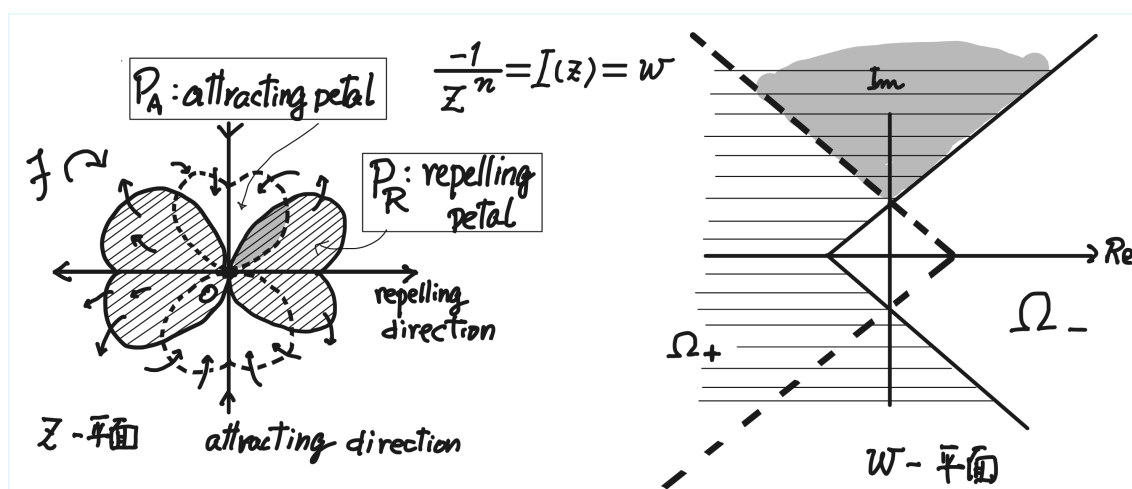 P_A : attracting petal
-1/z^n = I(z) = w
f
P_R : repelling
petal
O
repelling
direction
z - 平面
attracting direction
Im
Re
Ω+
Ω-
w - 平面